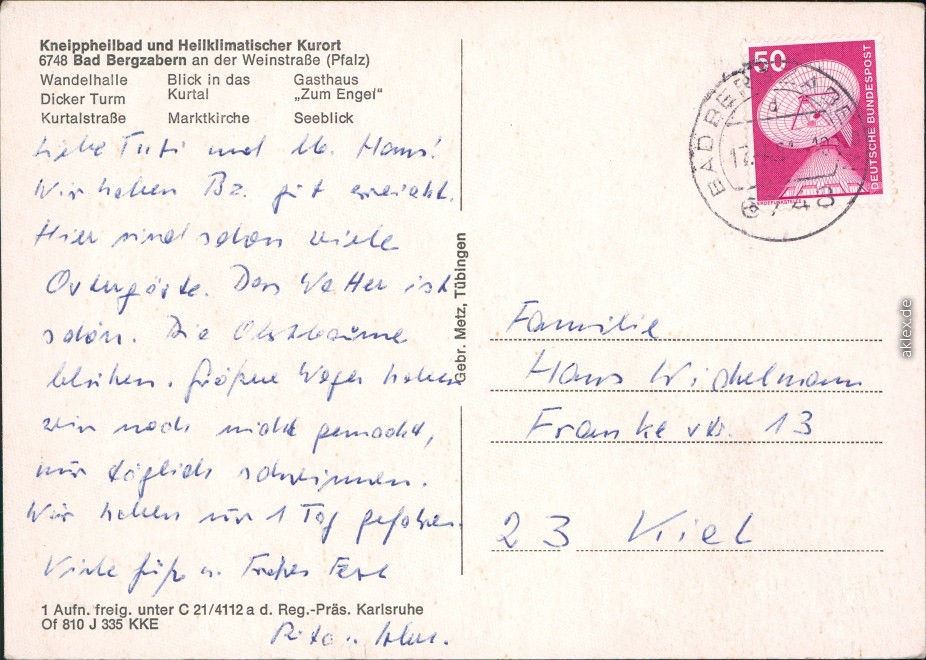 Kneippheilbad und Heilklimatischer Kurort
6748 Bad Bergzabern an der Weinstraße (Pfalz)
Wandelhalle Blick in das Kurtal Gasthaus „Zum Engel“
Dicker Turm
Kurtalstraße Marktkirche Seeblick
Liebe Tuti und lb. Hans!
Wir haben Bz. gut erreicht.
Hier sind schon viele
Ostergäste. Das Wetter ist
schön. Die Obstbäume
blühen. Größere Wege haben
wir noch nicht gemacht,
nur täglich schwimmen.
Wir haben nur 1 Tag gefahren.
Viele Grüße u. Frohes Fest
Rita u.
1 Aufn. freig. unter C 21/4112 a d. Reg.-Präs. Karlsruhe
Of 810 J 335 KKE
Gebr. Metz, Tübingen
50
DEUTSCHE BUNDESPOST
ERDEFUNKSTELLE
BAD BERGZABERN
6748
Familie
Hans Wichelmann
Frankestr. 13
23 Kiel
aklex.de